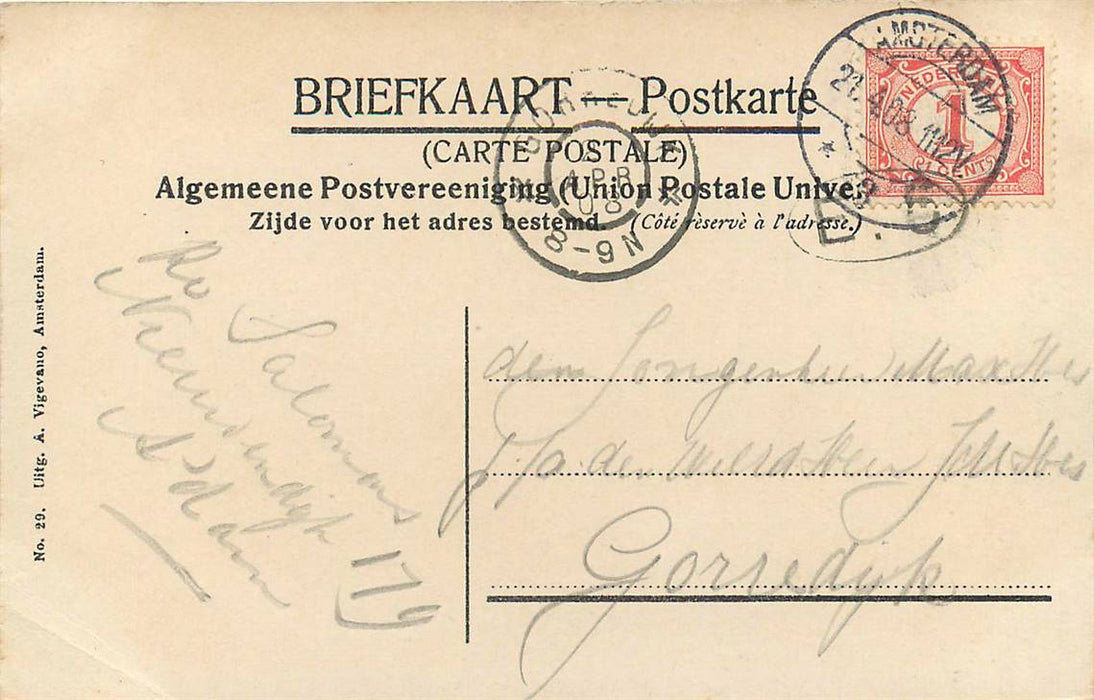 BRIEFKAART — Postkarte
(CARTE POSTALE)
Algemeene Postvereeniging (Union Postale Univer
Zijde voor het adres bestemd. (Côté rèservè à l'adresse.)
AMSTERDAM
21.4.08. 11-12V.
NEDERL
1
CENT
APR
08
8-9N
No. 29. Uitg. A. Vigevano, Amsterdam.
Salomons
Nieuwendijk 179
A'dam
den Jongenheer Max
p/a den
Gorredijk